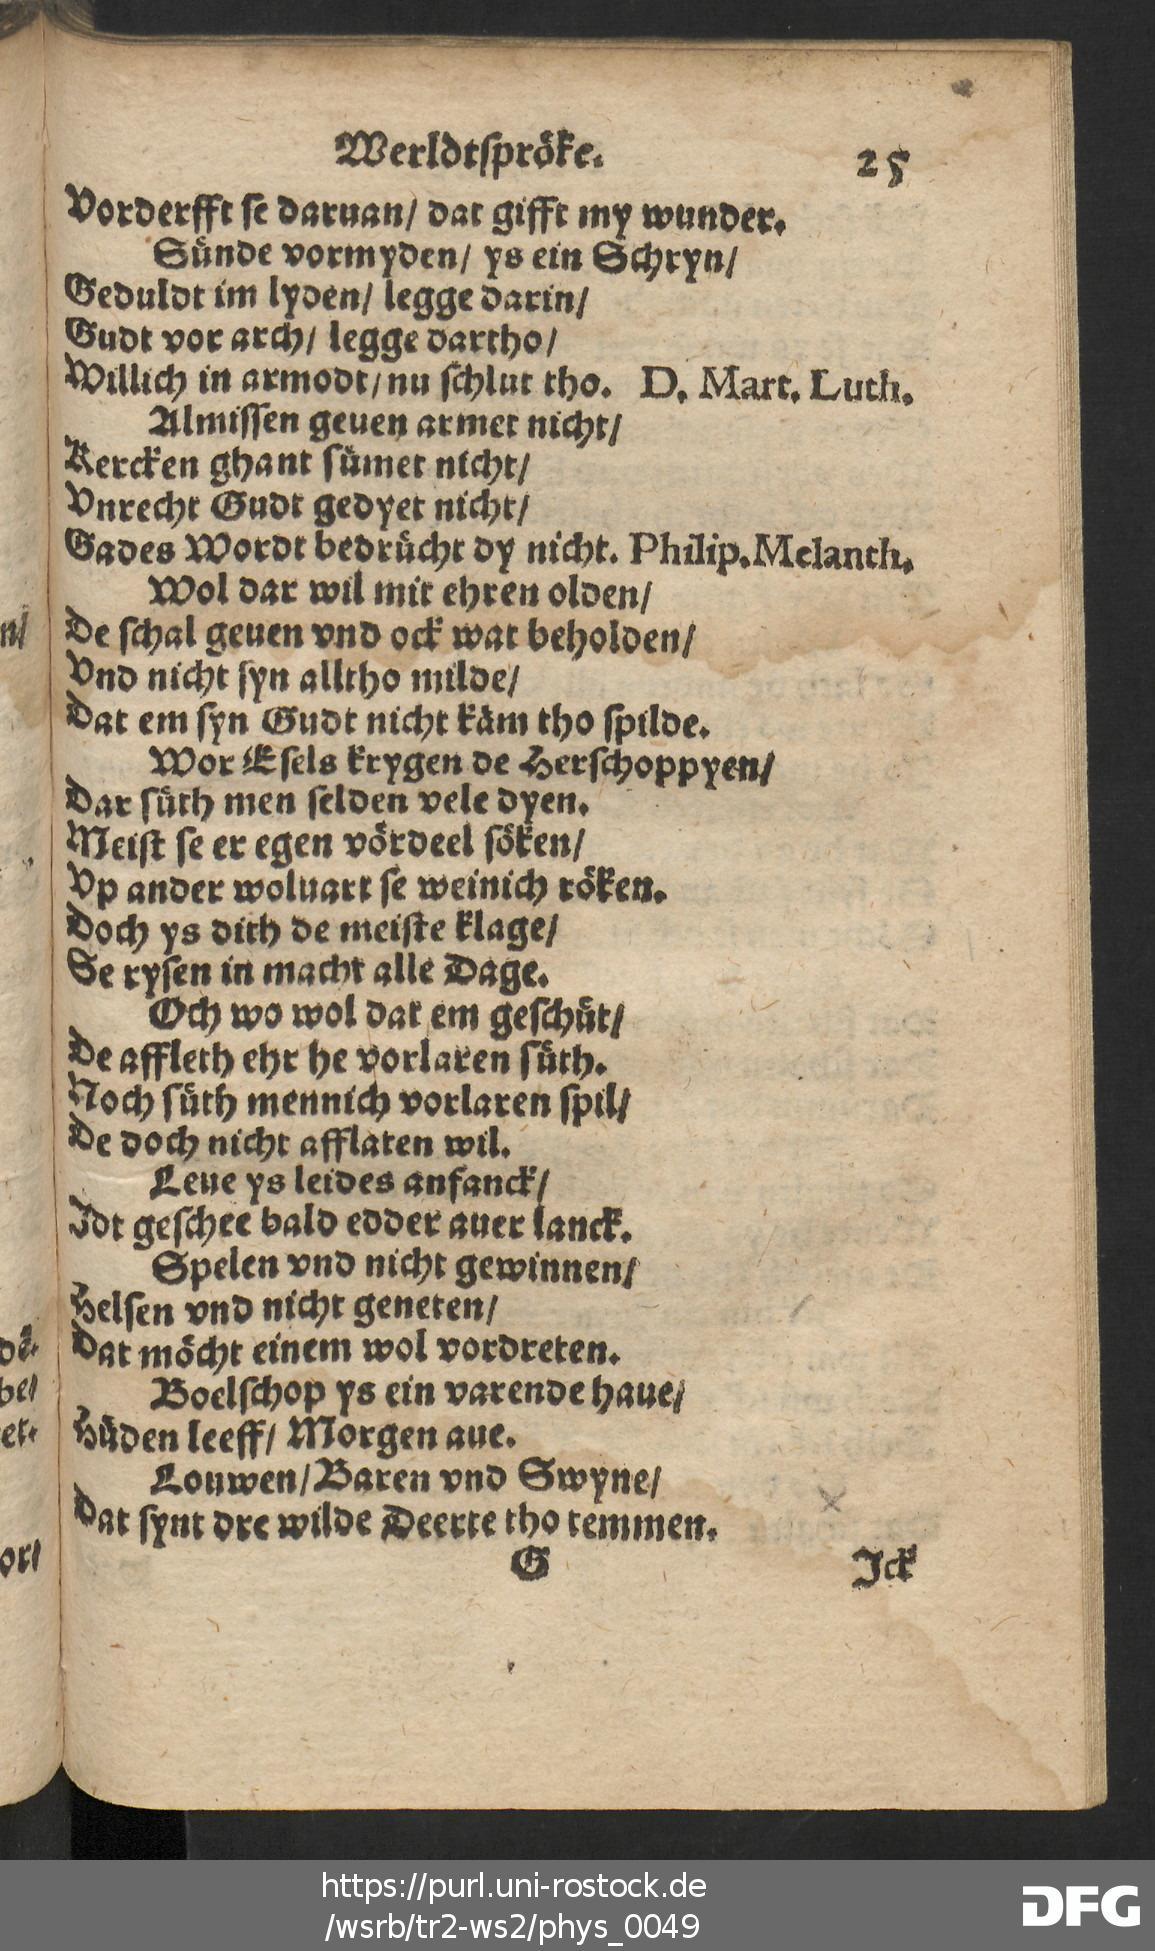 Werldtspröke.
25
Vorderfft se daruan/ dat gifft my wunder.
Sünde vormyden/ ys ein Schryn/
Geduldt im lyden/ legge darin/
Gudt vor arch/ legge dartho/
Willich in armodt/ nu schlut tho. D. Mart. Luth.
Almissen geuen armet nicht/
Kercken ghant sümet nicht/
Vnrecht Gudt gedyet nicht/
Gades Wordt bedrücht dy nicht. Philip. Melanth.
Wol dar wil mit ehren olden/
De schal geuen vnd ock wat beholden/
Vnd nicht syn alltho milde/
Dat em syn Gudt nicht käm tho spilde.
Wor Esels krygen de Herschoppyen/
Dar süth men selden vele dyen.
Meist se er egen vördeel söken/
Vp ander woluart se weinich röken.
Doch ys dith de meiste klage/
Se rysen in macht alle Dage.
Och wo wol dat em geschüt/
De affleth ehr he vorlaren süth.
Noch süth mennich vorlaren spil/
De doch nicht afflaten wil.
Leue ys leides anfanck/
Idt geschee bald edder auer lanck.
Spelen vnd nicht gewinnen/
Helsen vnd nicht geneten/
Dat möcht einem wol vordreten.
Boelschop ys ein varende haue/
Hüden leeff/ Morgen aue.
Louwen/ Baren vnd Swyne/
Dat synt dre wilde Deerte tho temmen.
G
Ick
https://purl.uni-rostock.de
/wsrb/tr2-ws2/phys_0049
DFG